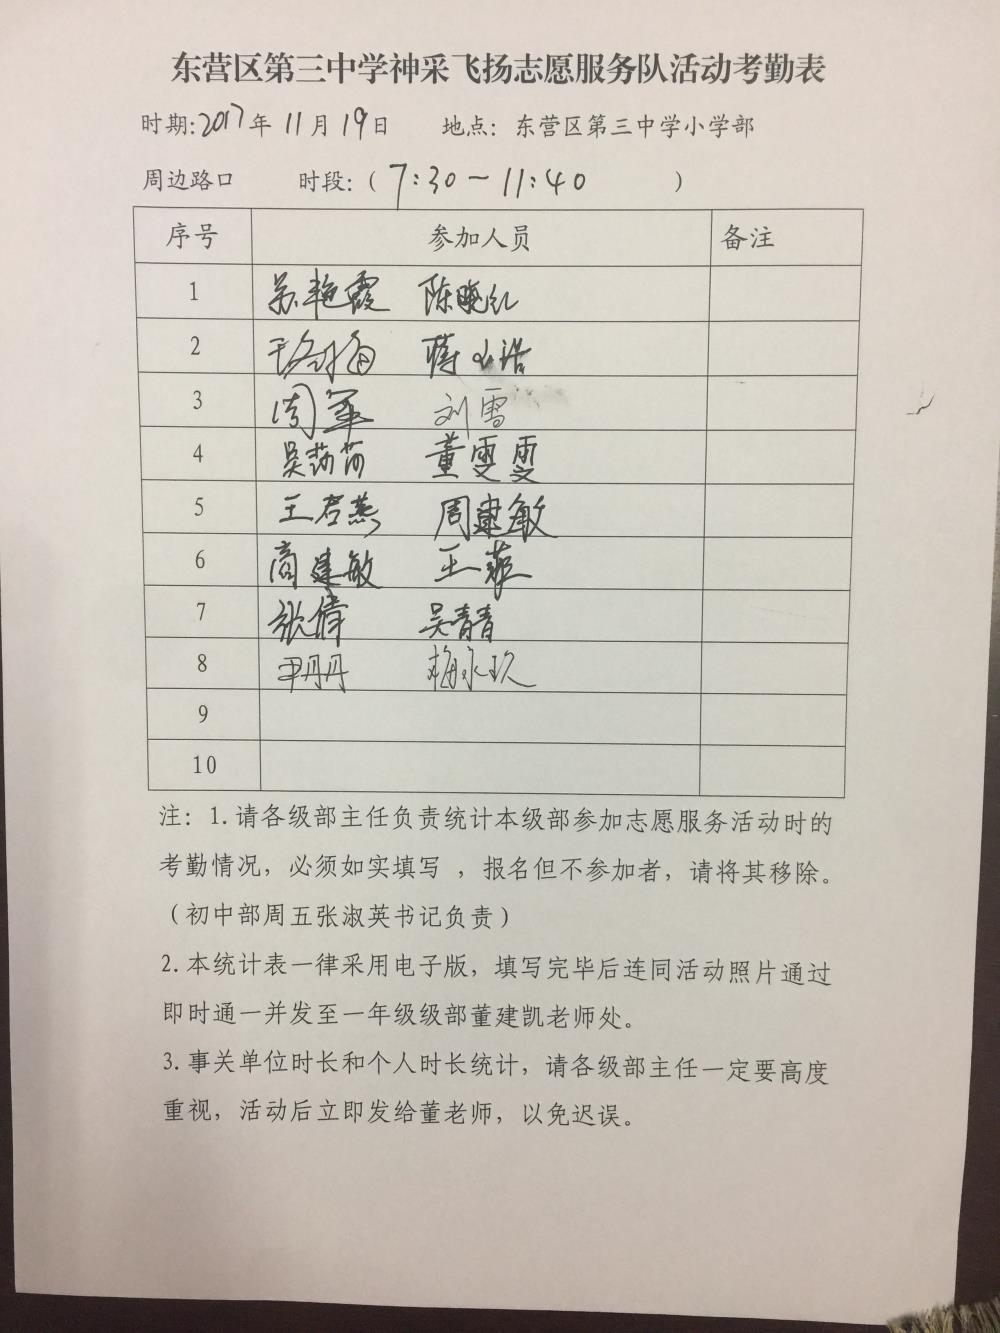 东营区第三中学神采飞扬志愿服务队活动考勤表
时期:2017年 11月 19日 地点：东营区第三中学小学部
周边路口 时段：( 7:30－11:40 )
序号 参加人员 备注
1 苏艳霞 陈晓红
2
3 周军 刘雪
4 吴莎莎 董雯雯
5 王君燕 周建敏
6 商建敏 王菲
7 张伟 吴青青
8 尹丹丹 梅永玖
9
10
注：1.请各级部主任负责统计本级部参加志愿服务活动时的
考勤情况，必须如实填写 ，报名但不参加者，请将其移除。
（初中部周五张淑英书记负责）
2.本统计表一律采用电子版，填写完毕后连同活动照片通过
即时通一并发至一年级级部董建凯老师处。
3.事关单位时长和个人时长统计，请各级部主任一定要高度
重视，活动后立即发给董老师，以免迟误。